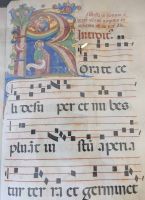 R
Introit⁹.
Orate ce
li desu per et nu bes
plu āt iu stū aperia
tur ter ra et germinet